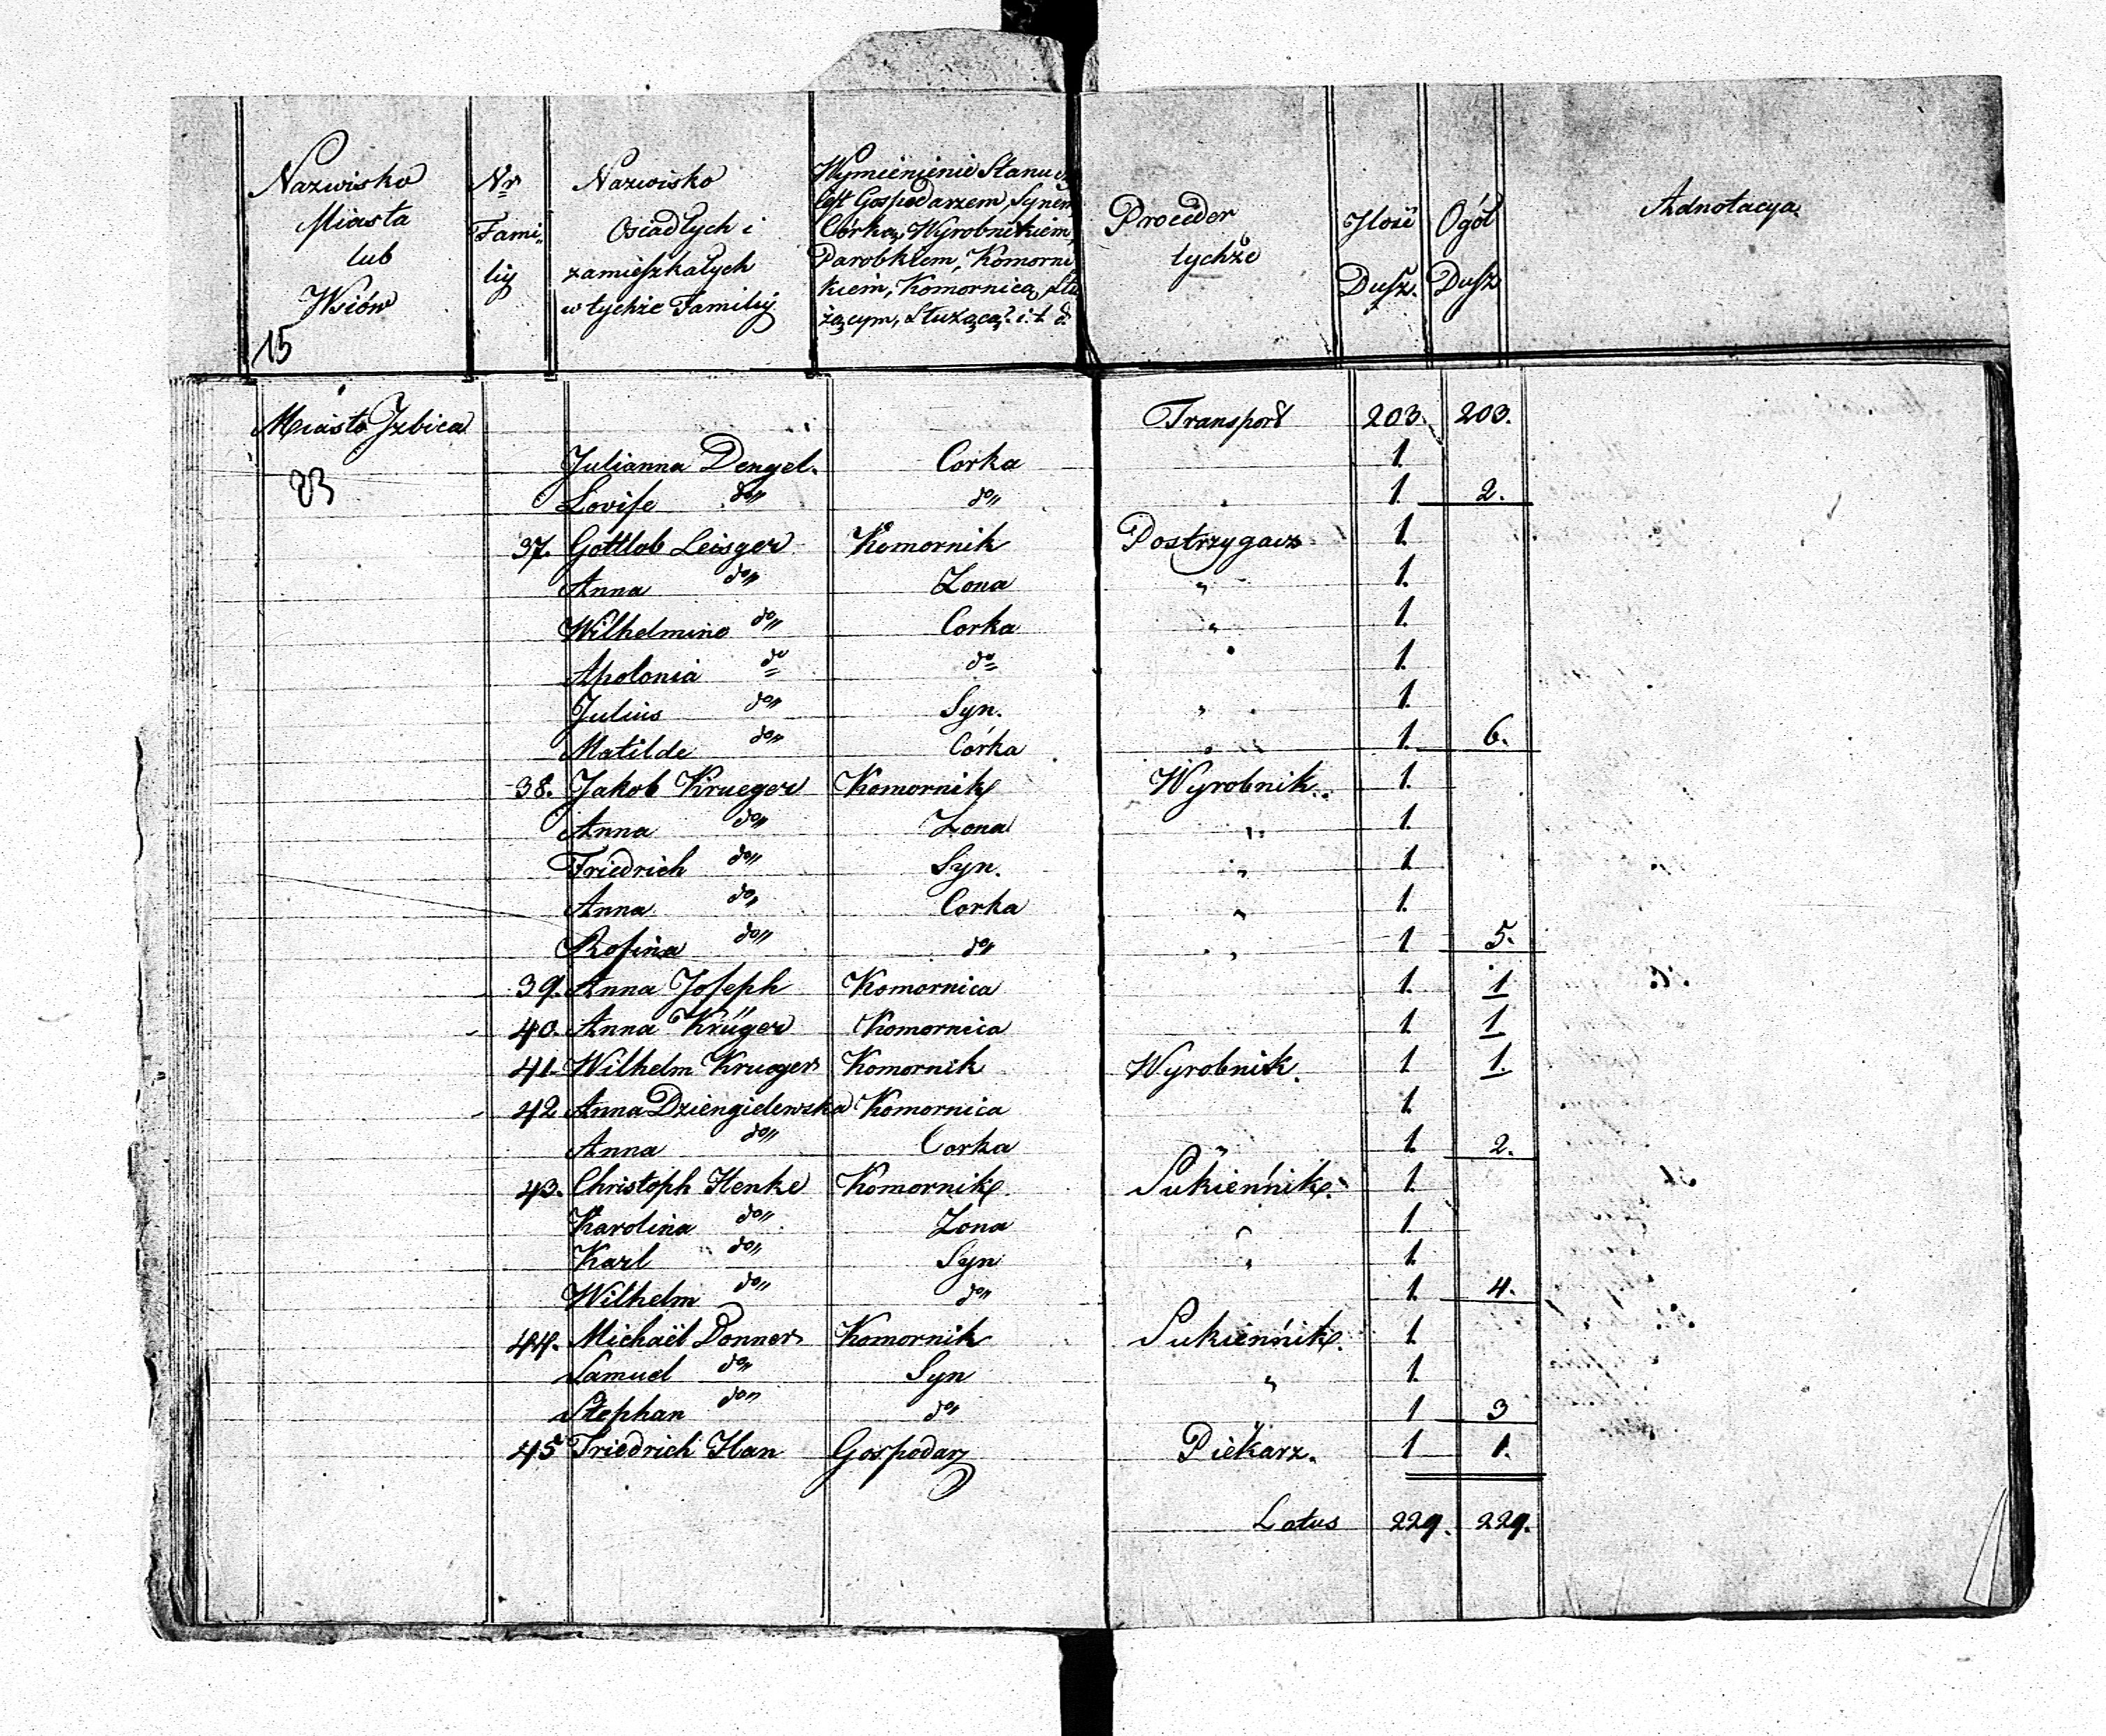 Nazwisko Miasta lub Wsiów
Nr Familij
Nazwisko Osiadłych i zamieszkałych w tychże Familij
Wymienienie Stanu
jest Gospodarzem, Synem
Córką, Wyrobnikiem,
Parobkiem, Komorni
kiem, Komornicą, Słu
żącym, Służącą? i. t. d.
Proceder tychże
Ilość Dusz.
Ogół Dusz
Adnotacya.
15
Miasto Izbica Transport 203. 203.
83
Julianna Dengel. Corka 1.
Lovise do do 1. 2.
37. Gottlob Leisger Komornik Postrzygacz 1.
Anna do Zona " 1.
Wilhelmine do Corka " 1.
Apolonia do do 1.
Julius do Syn. " 1.
Matilde do Córka " 1. 6.
38. Jakob Krueger Komornik Wyrobnik. 1.
Anna do Zona " 1.
Friedrich do Syn. " 1
Anna do Corka " 1.
Rosina do do " 1 5.
39. Anna Joseph Komornica 1. 1
40. Anna Krüger Komornica 1. 1.
41. Wilhelm Krueger Komornik Wyrobnik. 1 1.
42 Anna Dziengielewska Komornica 1.
Anna do Corka " 1. 2.
43. Christoph Henke Komornik. Sukiennik. 1.
Karolina do Zona " 1.
Karl do Syn " 1.
Wilhelm do do 1. 4.
44. Michaël Donner Komornik Sukiennik. 1.
Samuel do Syn " 1.
Stephan do do 1 3
45 Friedrich Han Gospodarz Piekarz. 1 1.
Latus 229. 229.